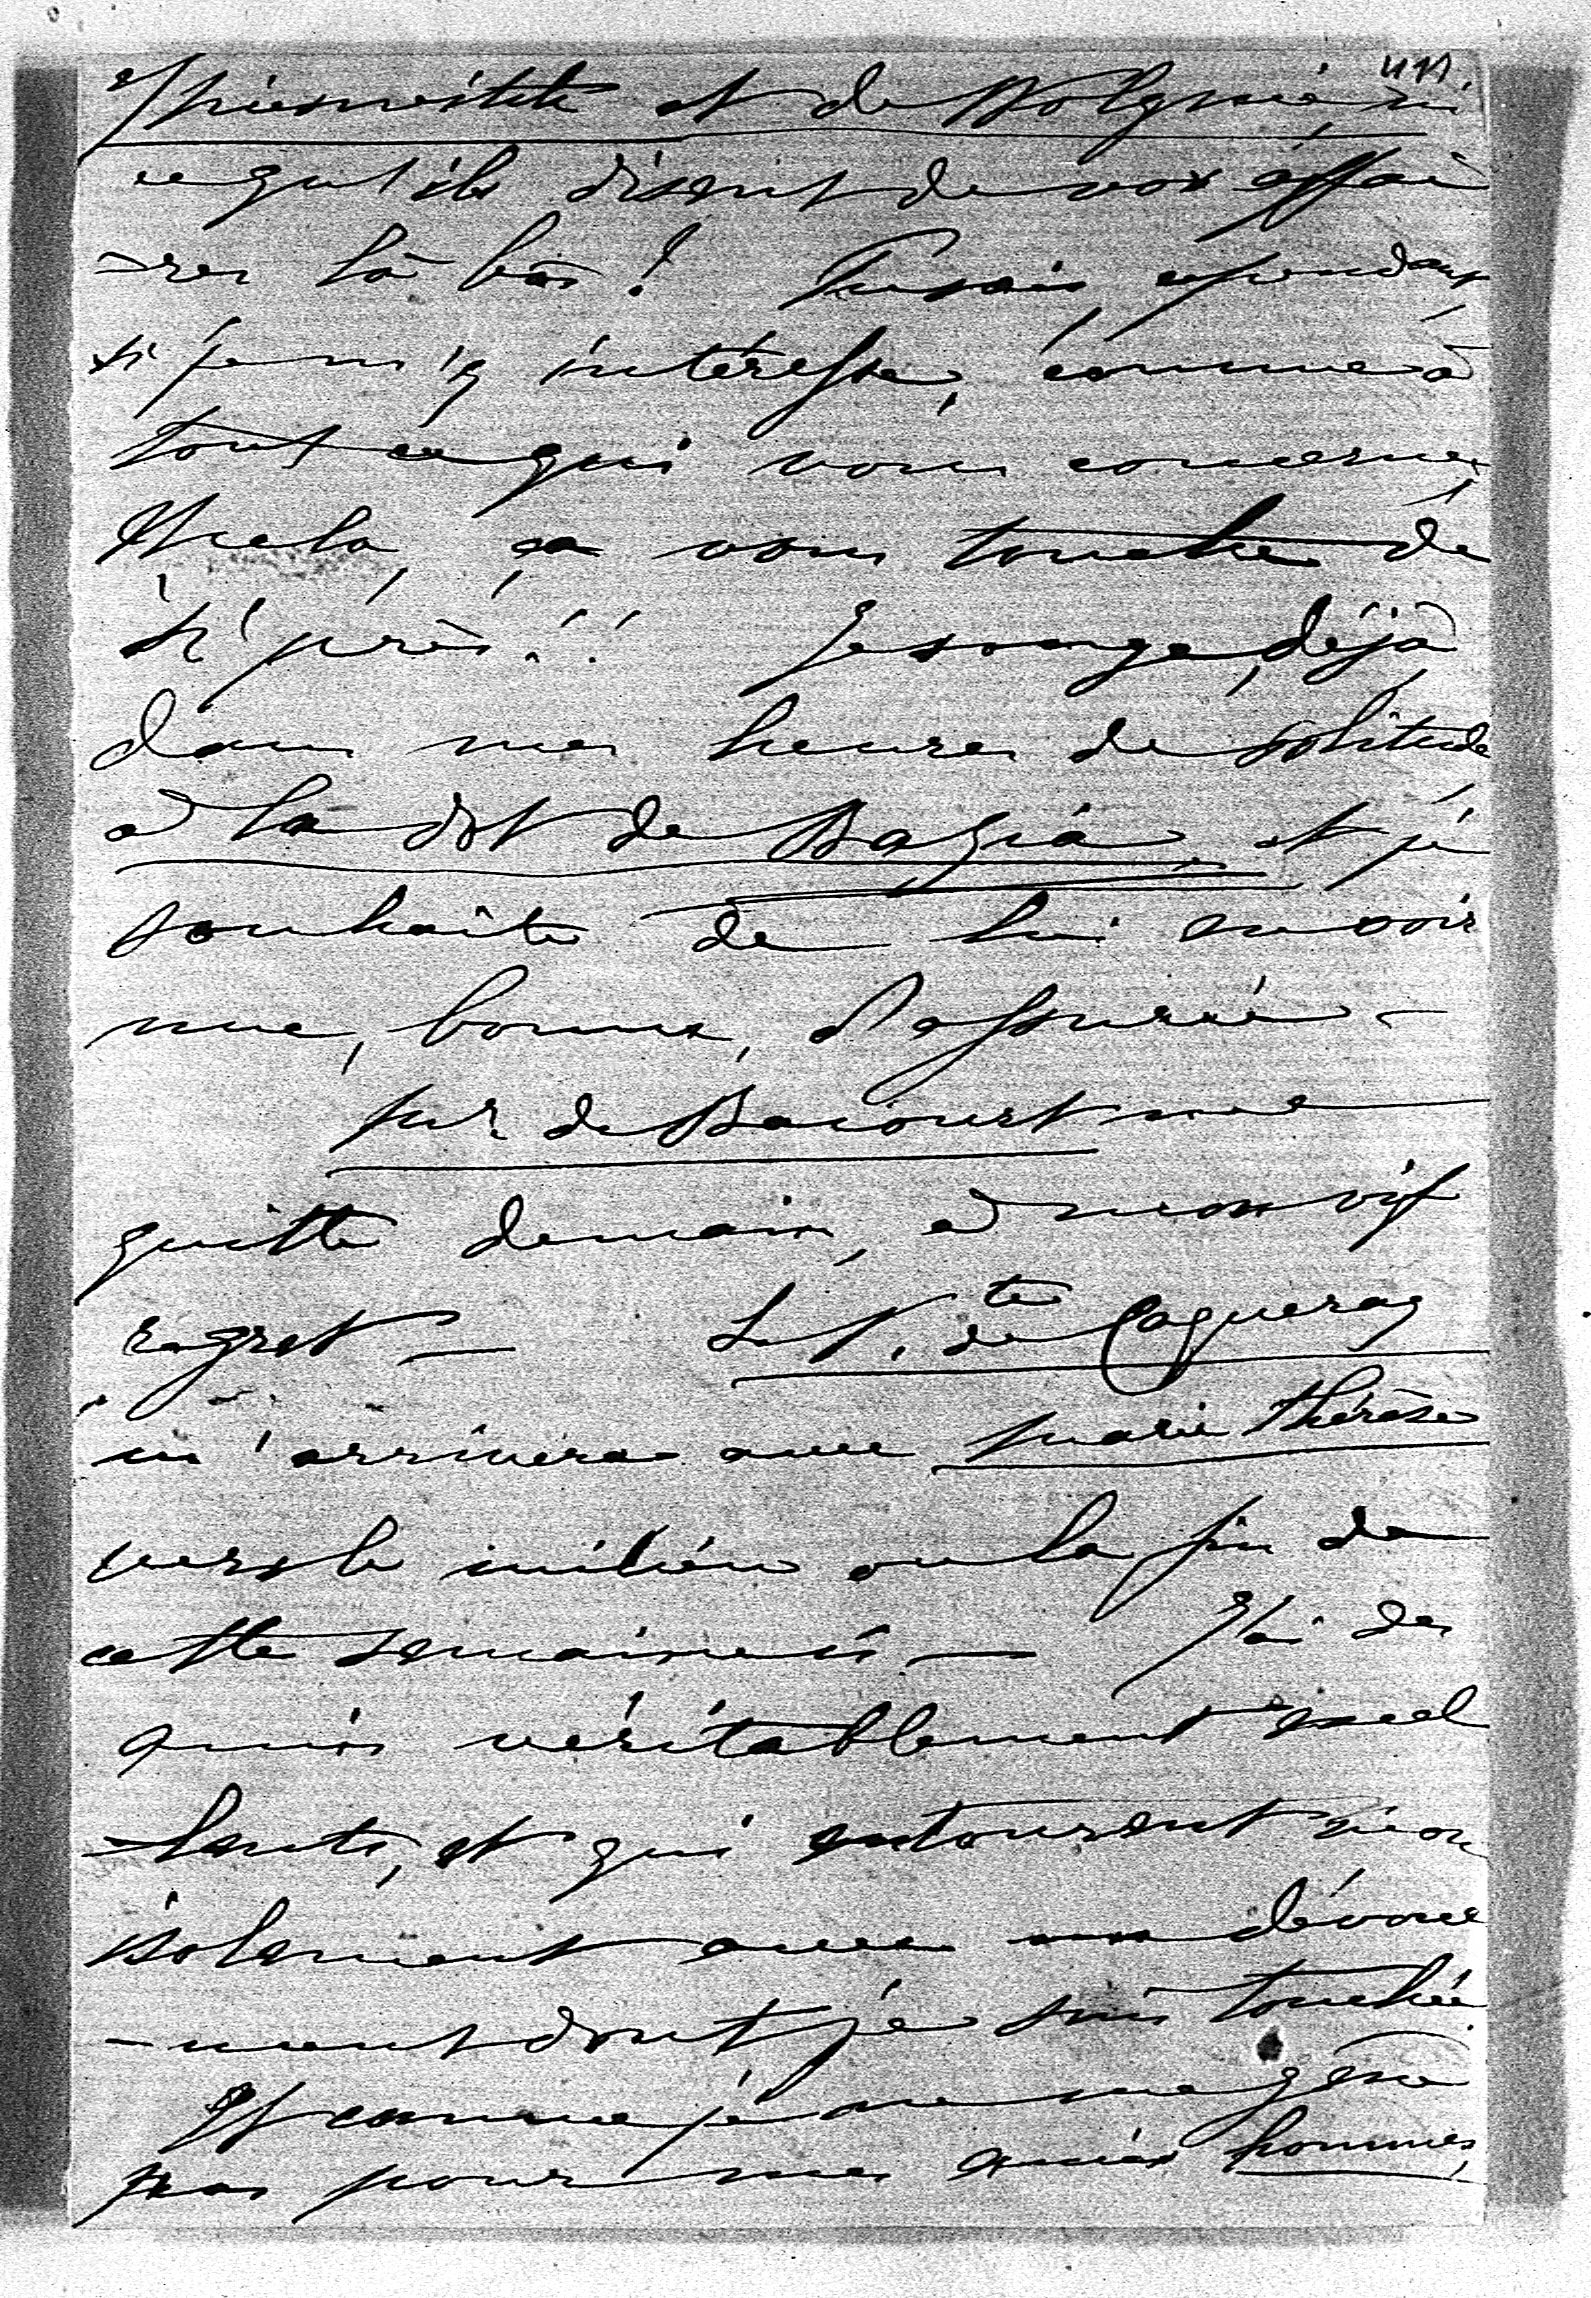 et de
ce qu'ils disent de vos affai
-res là bas ! Pensez cependant
si je m'y intéresse, comme à
tout ce qui vous concerne,
Hela, ça vous touche de
si près !! Je songe, déjà
dans mes heures de solitude
à la dot de et je
souhaite de lui en voir
une, bonne, d'assurée -
Mr de Bacourt me
quitte demain, à mon vif
regret - La V.te de Caqueray
m'arrivera avec Marie Thérèse
vers le milieu ou la fin de
cette semaine ci - J'ai des
amis véritablement excel
-lents, et qui entourent mon
isolement avec un dévoue
-ment dont je suis touchée.
Et comme je ne me gêne
pas pour mes amies hommes,